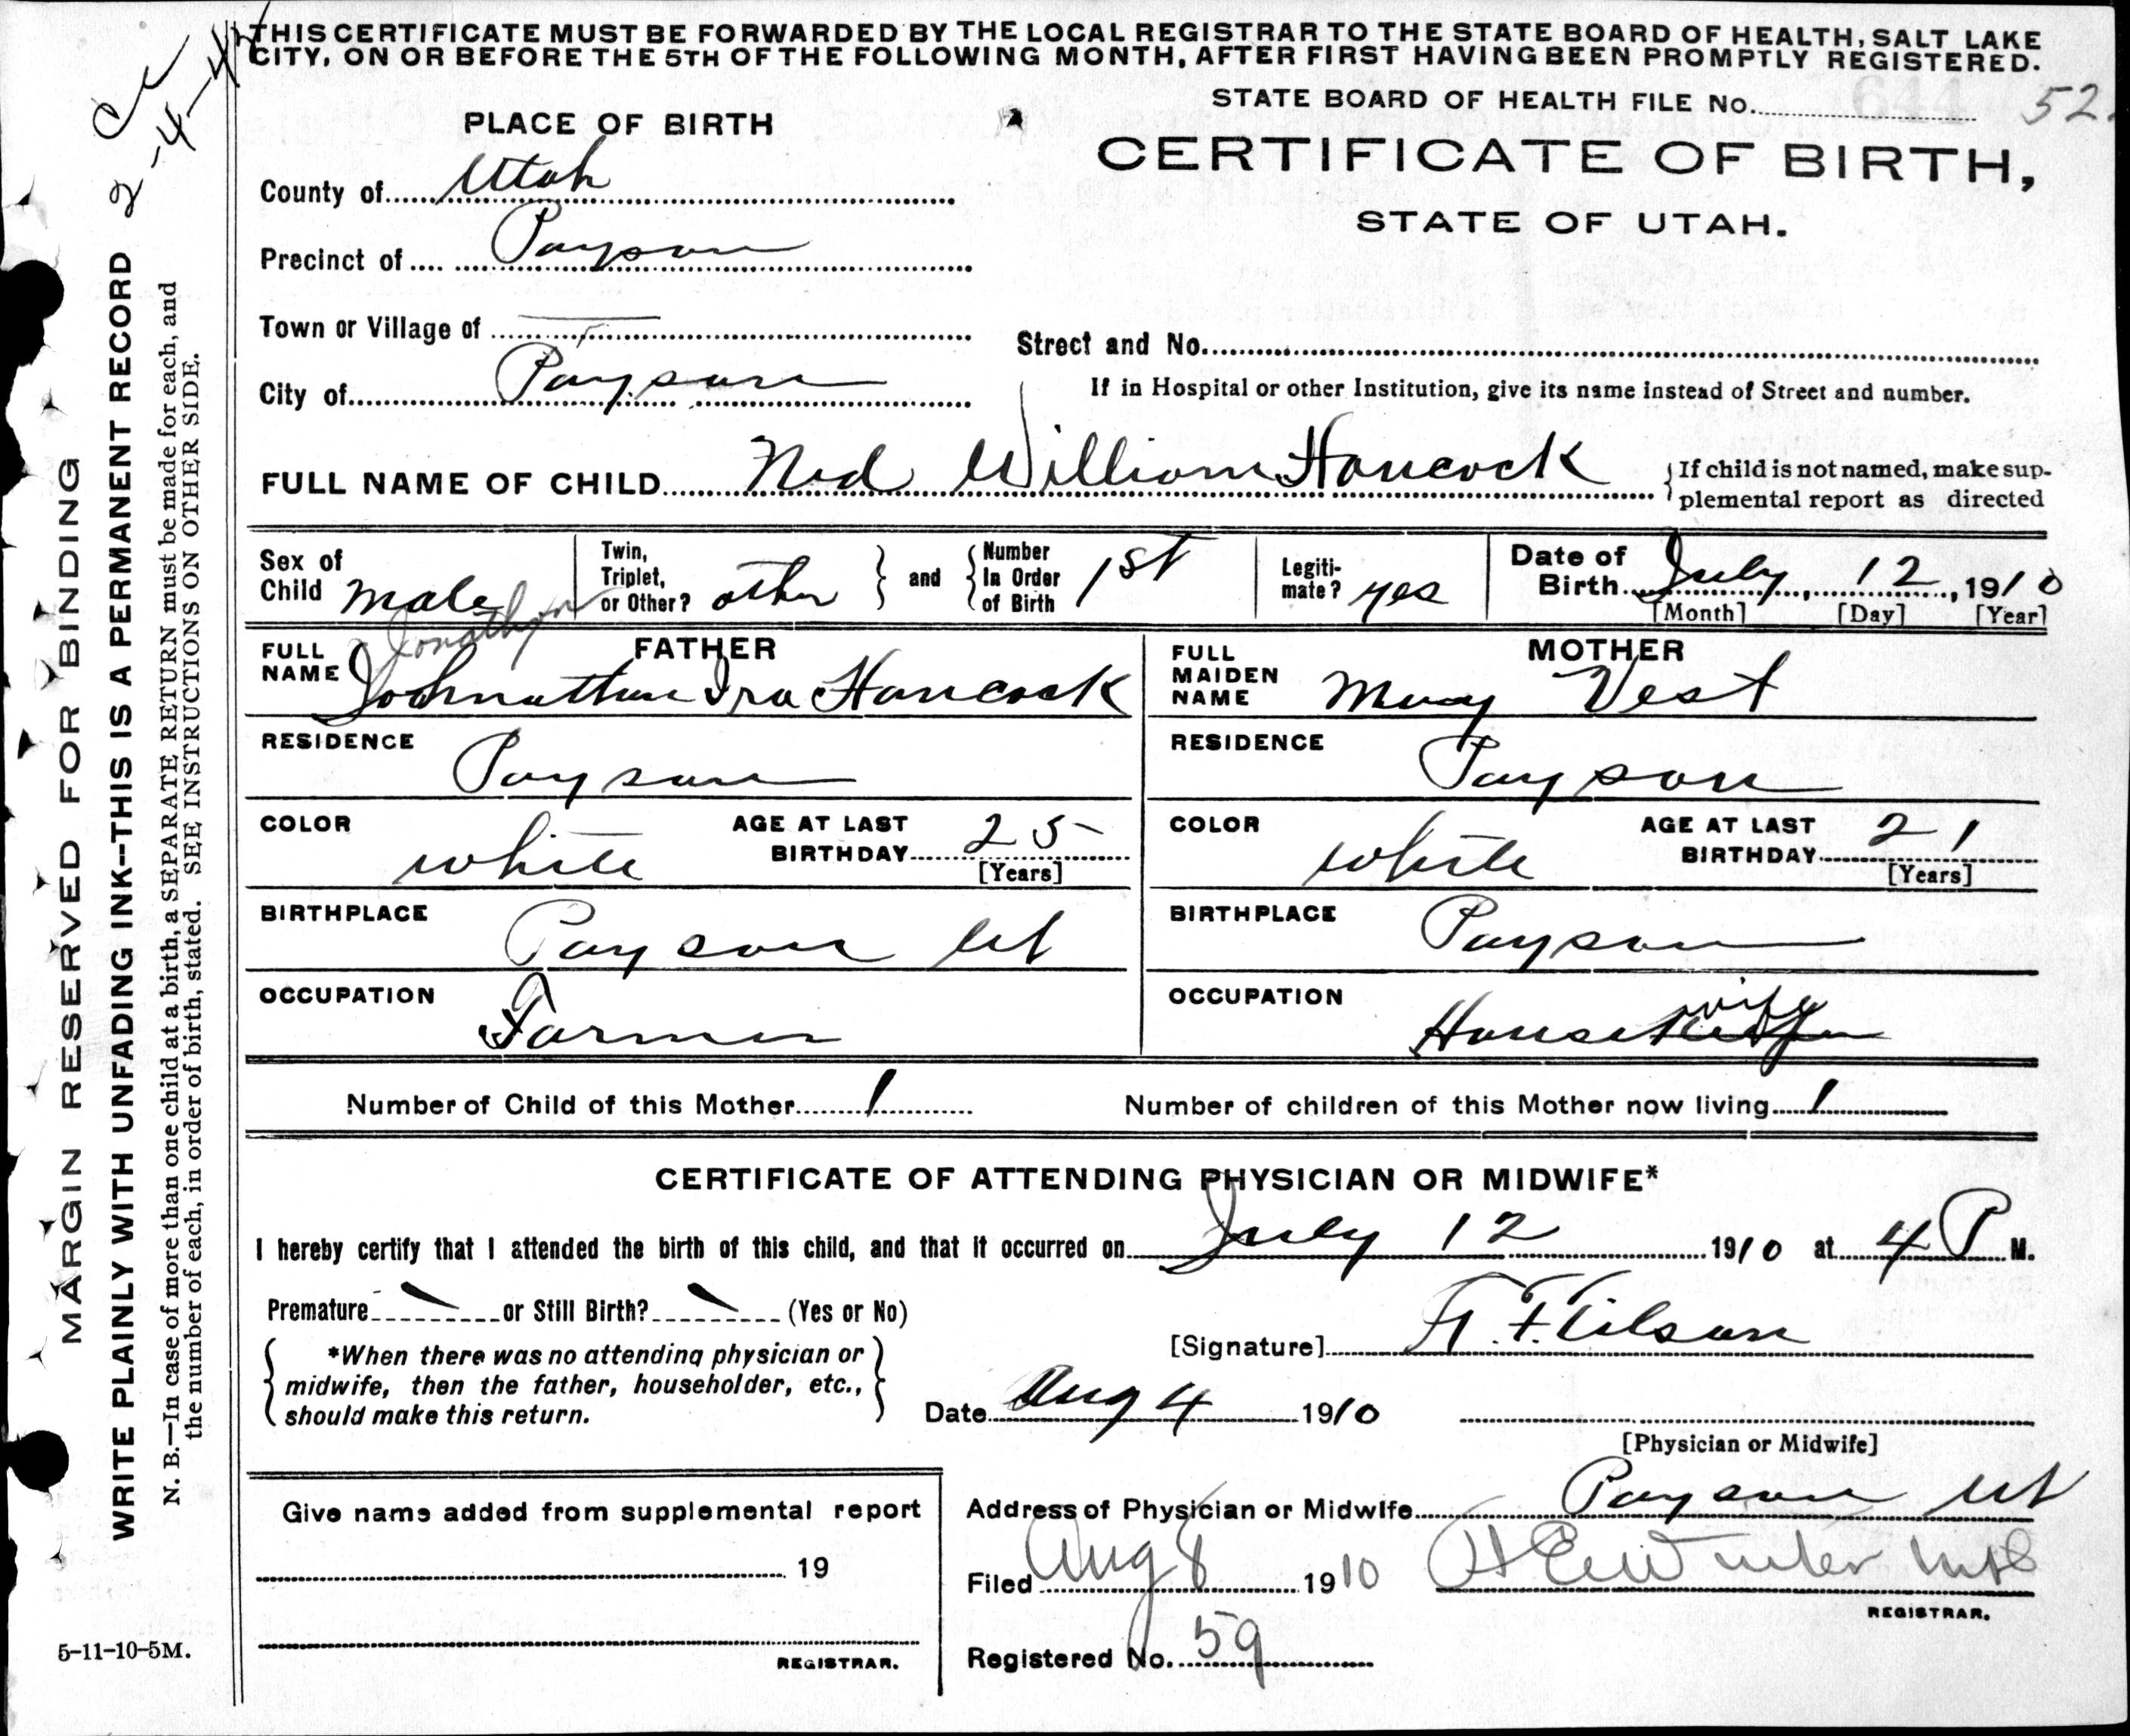 THIS CERTIFICATE MUST BE FORWARDED BY THE LOCAL REGISTRAR TO THE STATE BOARD OF HEALTH, SALT LAKE
CITY, ON OR BEFORE THE 5TH OF THE FOLLOWING MONTH, AFTER FIRST HAVING BEEN PROMPTLY REGISTERED.
STATE BOARD OF HEALTH FILE No. 52
PLACE OF BIRTH
CERTIFICATE OF BIRTH,
STATE OF UTAH.
County of Utah
Precinct of Payson
Town or Village of
Street and No.
City of Payson
If in Hospital or other Institution, give its name instead of Street and number.
FULL NAME OF CHILD Ned William Hancock
If child is not named, make sup-
plemental report as directed
Sex of Child male
Twin, Triplet, or Other? other and Number In Order of Birth 1st
Legiti-mate? yes
Date of Birth July, 12, 1910
[Month] [Day] [Year]
FATHER
Jonathan
FULL NAME Johnathan Ira Hancock
RESIDENCE Payson
COLOR white AGE AT LAST BIRTHDAY 25
[Years]
BIRTHPLACE Payson Ut
OCCUPATION Farmer
MOTHER
FULL MAIDEN NAME May Vest
RESIDENCE Payson
COLOR white AGE AT LAST BIRTHDAY 21
[Years]
BIRTHPLACE Payson
OCCUPATION Housewife
Number of Child of this Mother 1
Number of children of this Mother now living 1
CERTIFICATE OF ATTENDING PHYSICIAN OR MIDWIFE*
I hereby certify that I attended the birth of this child, and that it occurred on July 12 1910 at 4 P M.
Premature or Still Birth? (Yes or No)
*When there was no attending physician or
midwife, then the father, householder, etc.,
should make this return.
[Signature]
Date Aug 4 1910
[Physician or Midwife]
Address of Physician or Midwife Payson Ut
Filed Aug 8 1910
REGISTRAR.
Registered No. 59
Give name added from supplemental report
19
REGISTRAR.
5-11-10-5M.
MARGIN RESERVED FOR BINDING
WRITE PLAINLY WITH UNFADING INK--THIS IS A PERMANENT RECORD
N. B.—In case of more than one child at a birth, a SEPARATE RETURN must be made for each, and
the number of each, in order of birth, stated. SEE INSTRUCTIONS ON OTHER SIDE.